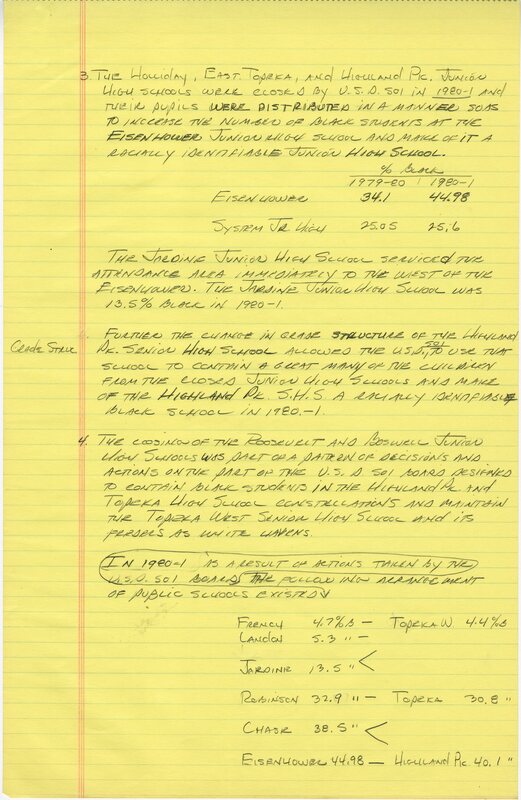 3. The Holliday, East Topeka, and Highland Pk. Junior
High Schools were closed by U.S.D. 501 in 1980-1 and
their pupils were distributed in a manner so as
to increase the number of black students at the
Eisenhower Junior High School and make of it a
racially identifiable Junior High School.
% Black
1979-80 1980-1
Eisenhower 34.1 44.98
System Jr High 25.05 25.6
The Jardine Junior High School serviced the
attendance area immediately to the west of the
Eisenhower. The Jardine Junior High School was
13.5% black in 1980-1.
Further the change in grade structure of the Highland
Grade Struc Pk. Senior High School allowed the U.S.D. 501 to use that
school to contain a great many of the children
from the closed Junior High Schools and make
of the Highland Pk. S.H.S. a racially identifiable
black school in 1980-1.
4. The closing of the Roosevelt and Boswell Junior
High Schools was part of a patern of decisions and
actions on the part of the U.S.D 501 board designed
to contain black students in the Highland Pk and
Topeka High School constellations and maintain
the Topeka West Senior High School and its
feeders as white havens.
In 1980-1 as a result of actions taken by the
U.S.D. 501 board the following arrangement
of public schools existed
French 4.7% B — Topeka W. 4.4% B
Landon 5.3 " —
Jardine 13.5 " <
Robinson 32.9 " — Topeka 30.8 "
Chase 38.5 " <
Eisenhower 44.98 — Highland Pk. 40.1 "